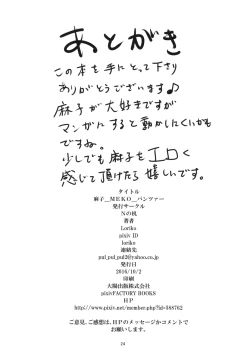 あとがき
この本を手にとって下さり
ありがとうございます♪
麻子が大好きですが
マンガにすると動かしにくいかも
ですね。
少しでも麻子をエロく
感じて頂けたら嬉しいです。
タイトル
麻子__MEKO__パンツァー
発行サークル
Nの祝
著者
Loriko
pixiv ID
loriko
連絡先
pul_pul_pul2@yahoo.co.jp
発行日
2016/10/2
印刷
大陽出版株式会社
pixivFACTORY BOOKS
HP
http://www.pixiv.net/member.php?id=588762
ご意見、ご感想は、HPのメッセージかコメントで
お願いします。
24